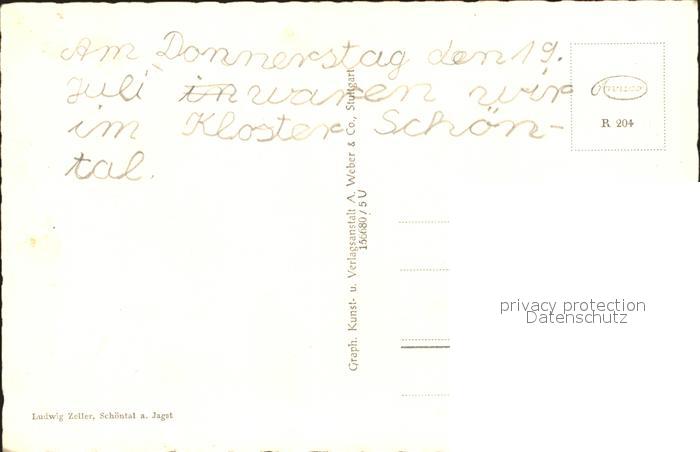 Am Donnerstag den 19.
Juli im waren wir
im Kloster Schön-
tal.
R 204
Graph. Kunst- u. Verlagsanstalt A. Weber & Co., Stuttgart
156680/5 U
privacy protection
Datenschutz
Ludwig Zeller, Schöntal a. Jagst